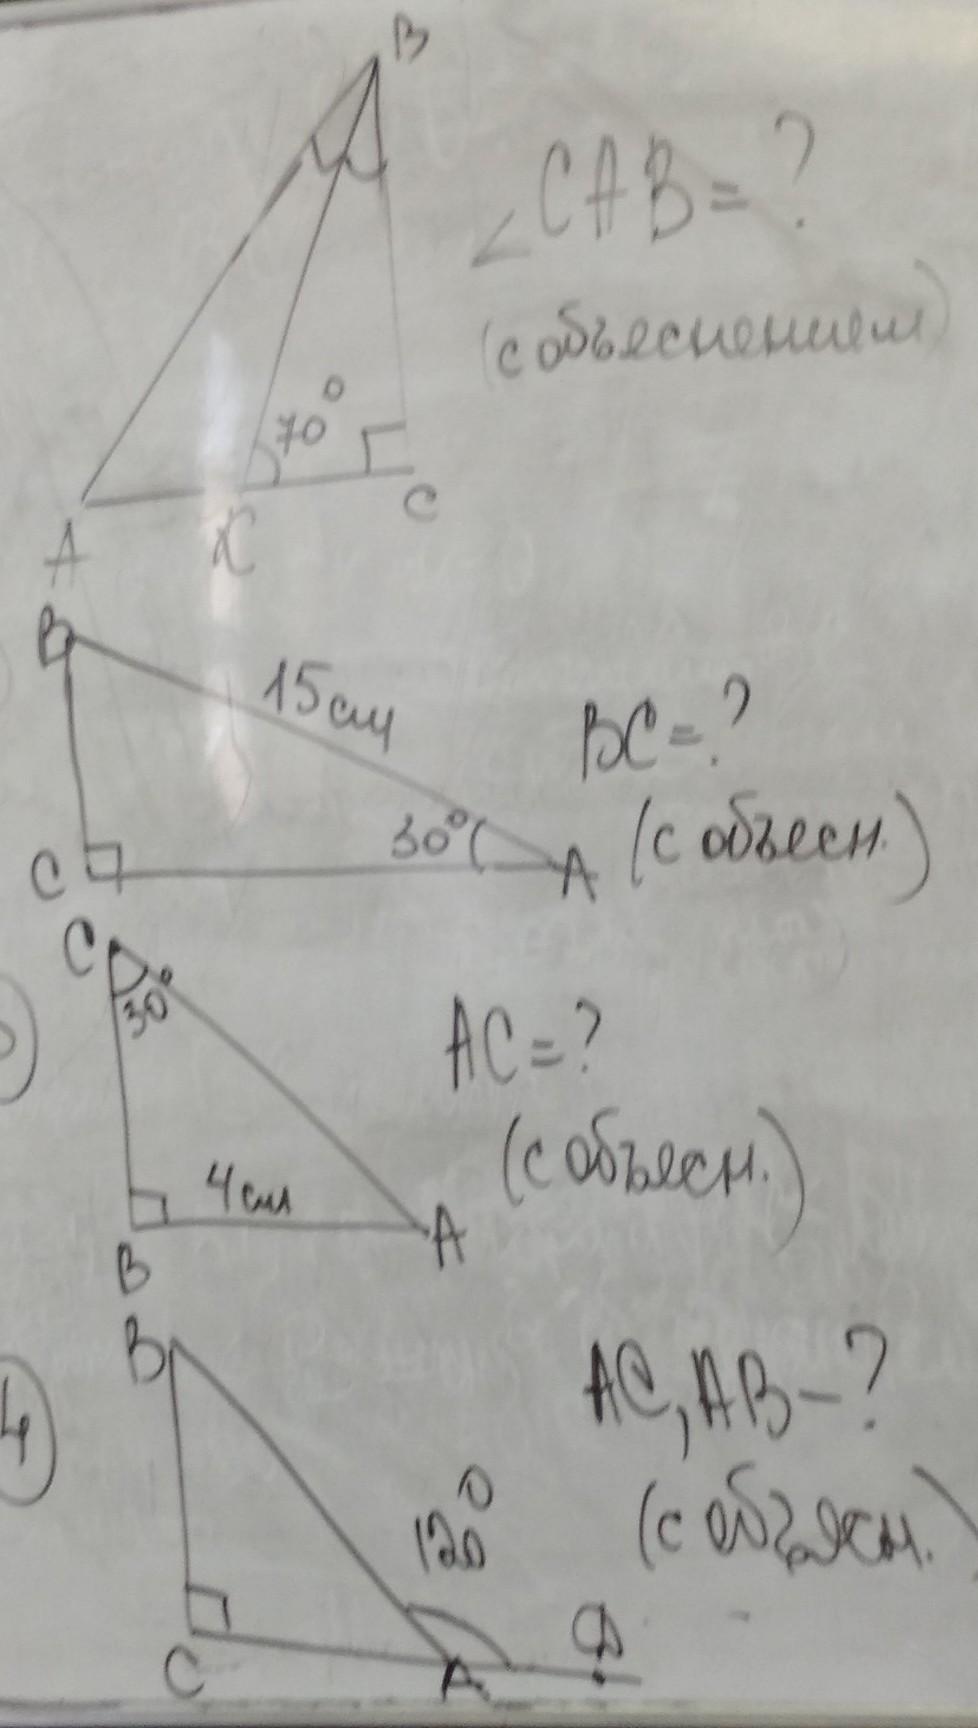 B
∠CAB=?
(с объеснением)
70°
A
K
C
B
15см
BC=?
30°
(с объесн.)
C
A
C
30°
AC=?
(с объясн.)
4см
B
A
4
B
AC, AB-?
120°
(с объясн.)
C
A
D